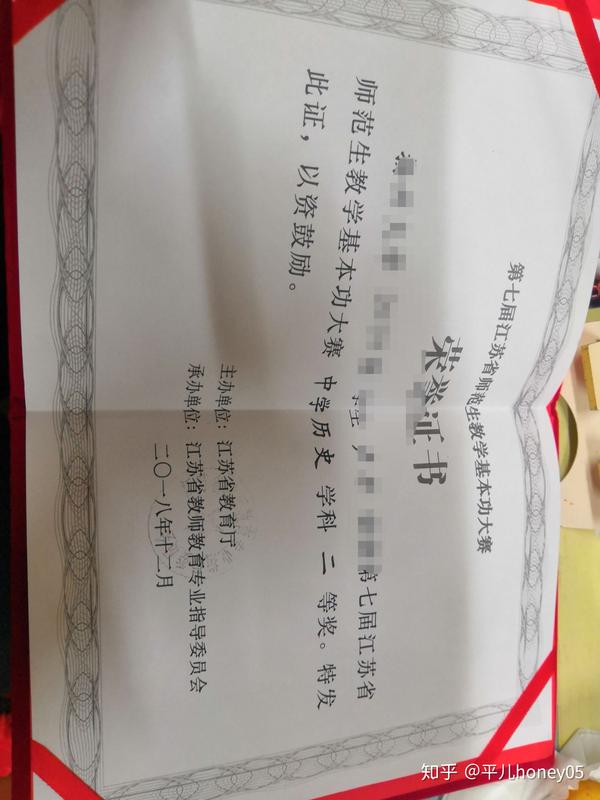 第七届江苏省师范生教学基本功大赛
荣誉证书
学生
第七届江苏省
师范生教学基本功大赛 中学历史 学科 二 等奖。特发
此证，以资鼓励。
主办单位：江苏省教育厅
承办单位：江苏省教师教育专业指导委员会
二〇一八年十二月
知乎 @平儿honey05